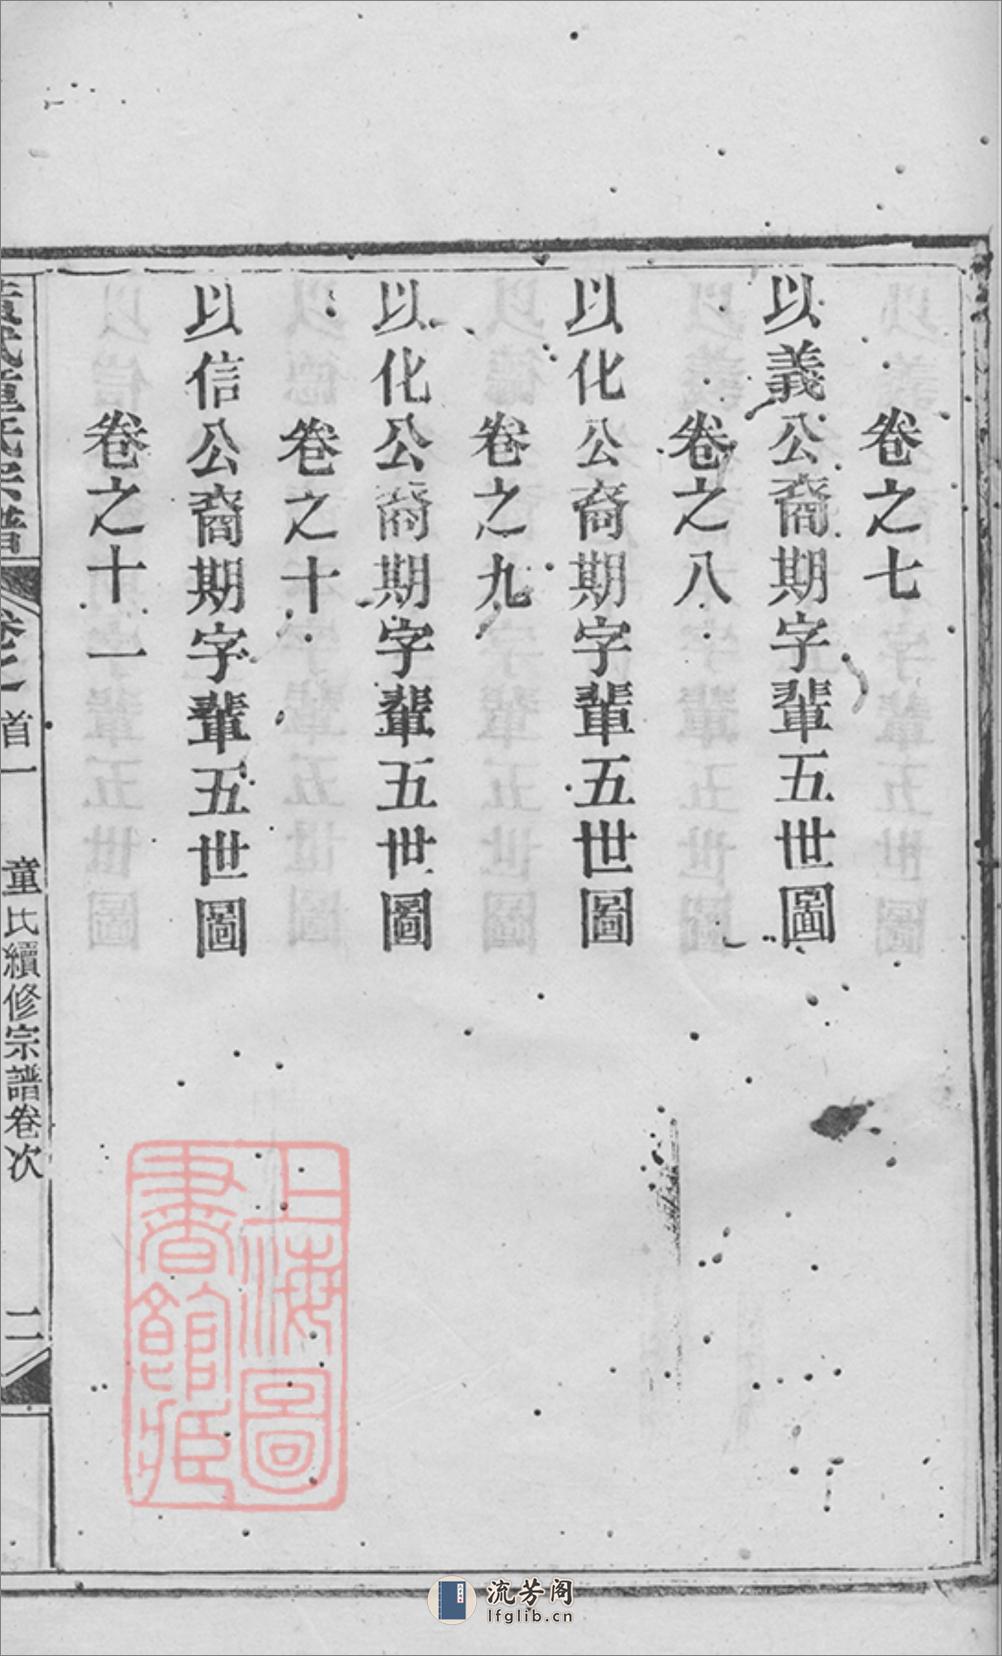 卷之七
以義公裔期字輩五世圖
卷之八
以化公裔期字輩五世圖
卷之九
以化公裔期字輩五世圖
卷之十
以信公裔期字輩五世圖
卷之十一
童氏宗譜
卷之
首一
童氏續修宗譜卷次
二
上海圖
書館藏
流芳阁
lfglib.cn